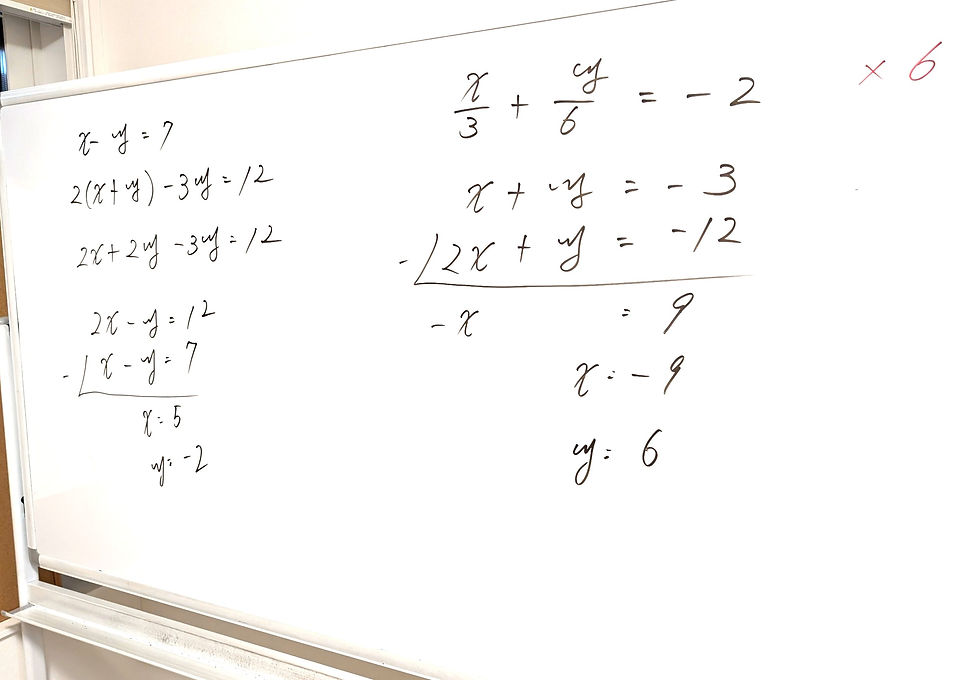 x - y = 7
2(x+y) - 3y = 12
2x + 2y - 3y = 12
2x - y = 12
- ) x - y = 7
x = 5
y = -2
x/3 + y/6 = -2 × 6
x + y = -3
- ) 2x + y = -12
-x = 9
x = -9
y = 6